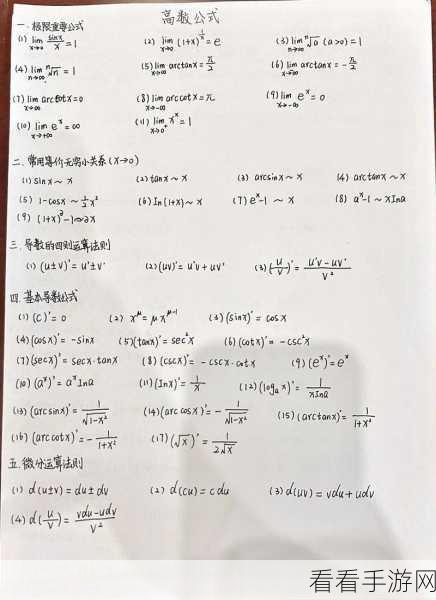 高数公式
一. 极限重要公式
(1) lim x→0 sinx/x = 1 (2) lim x→0 (1+x)^(1/x) = e (3) lim n→∞ ⁿ√a (a>0) = 1
(4) lim n→∞ ⁿ√n = 1 (5) lim x→∞ arctanx = π/2 (6) lim x→-∞ arctanx = -π/2
(7) lim x→∞ arccotx = 0 (8) lim x→-∞ arccotx = π (9) lim x→-∞ eˣ = 0
(10) lim x→+∞ eˣ = ∞ (11) lim x→0⁺ xˣ = 1
二. 常用等价无穷小关系 (x→0)
(1) sinx ~ x (2) tanx ~ x (3) arcsinx ~ x (4) arctanx ~ x
(5) 1-cosx ~ ½x² (6) ln(1+x) ~ x (7) eˣ-1 ~ x (8) aˣ-1 ~ xlna
(9) (1+x)^∂-1 ~ ∂x
三. 导数的四则运算法则
(1) (u±v)' = u'±v' (2) (uv)' = u'v+uv' (3) (u/v)' = (u'v-uv')/v²
四. 基本导数公式
(1) (c)' = 0 (2) x^μ = μx^(μ-1) (3) (sinx)' = cosx
(4) (cosx)' = -sinx (5) (tanx)' = sec²x (6) (cotx)' = -csc²x
(7) (secx)' = secx·tanx (8) (cscx)' = -cscx·cotx (9) (eˣ)' = eˣ
(10) (aˣ)' = aˣlna (11) (lnx)' = 1/x (12) (logₐx)' = 1/(xlna)
(13) (arcsinx)' = 1/√(1-x²) (14) (arccosx)' = -1/√(1-x²) (15) (arctanx)' = 1/(1+x²)
(16) (arccotx)' = -1/(1+x²) (17) (√x)' = 1/(2√x)
五. 微分运算法则
(1) d(u±v) = du±dv (2) d(cu) = cdu (3) d(uv) = vdu+udv
(4) d(u/v) = (vdu-udv)/v²
看看手游网